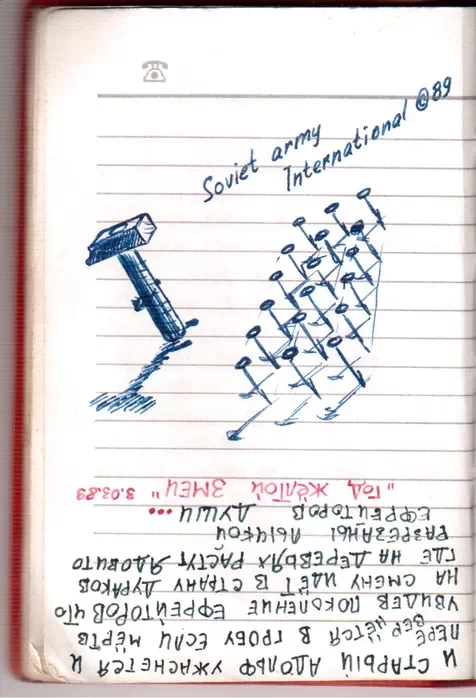 Soviet army
International ©89
И СТАРЫЙ АДОЛЬФ УЖАСНЕТСЯ И
ПЕРЕВЕРНЁТСЯ В ГРОБУ ЕСЛИ МЁРТВ
УВИДЕВ ПОКОЛЕНИЕ ЕФРЕЙТОРОВ ЧТО
НА СМЕНУ ИДЁТ В СТРАНУ ДУРАКОВ
ГДЕ НА ДЕРЕВЬЯХ РАСТУТ ЯДОВИТО
РАЗРЕЗАНЫ ЛЫЧКОЙ
ЕФРЕЙТОРОВ ДУШИ...
"ГОД ЖЁЛТОЙ ЗМЕИ" 3.03.89